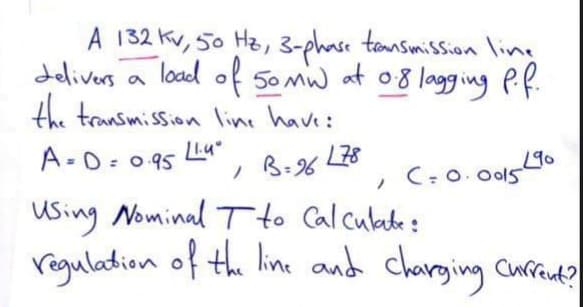 A 132 Kv, 50 Hz, 3-phase transmission line
delivers a load of 50 MW at 0.8 lagging P.f.
the transmission line have:
A = D = 0.95 ∠1.4°, B = 96 ∠78, C = 0.0015 ∠90
Using Nominal T to Calculate:
regulation of the line and charging Current?